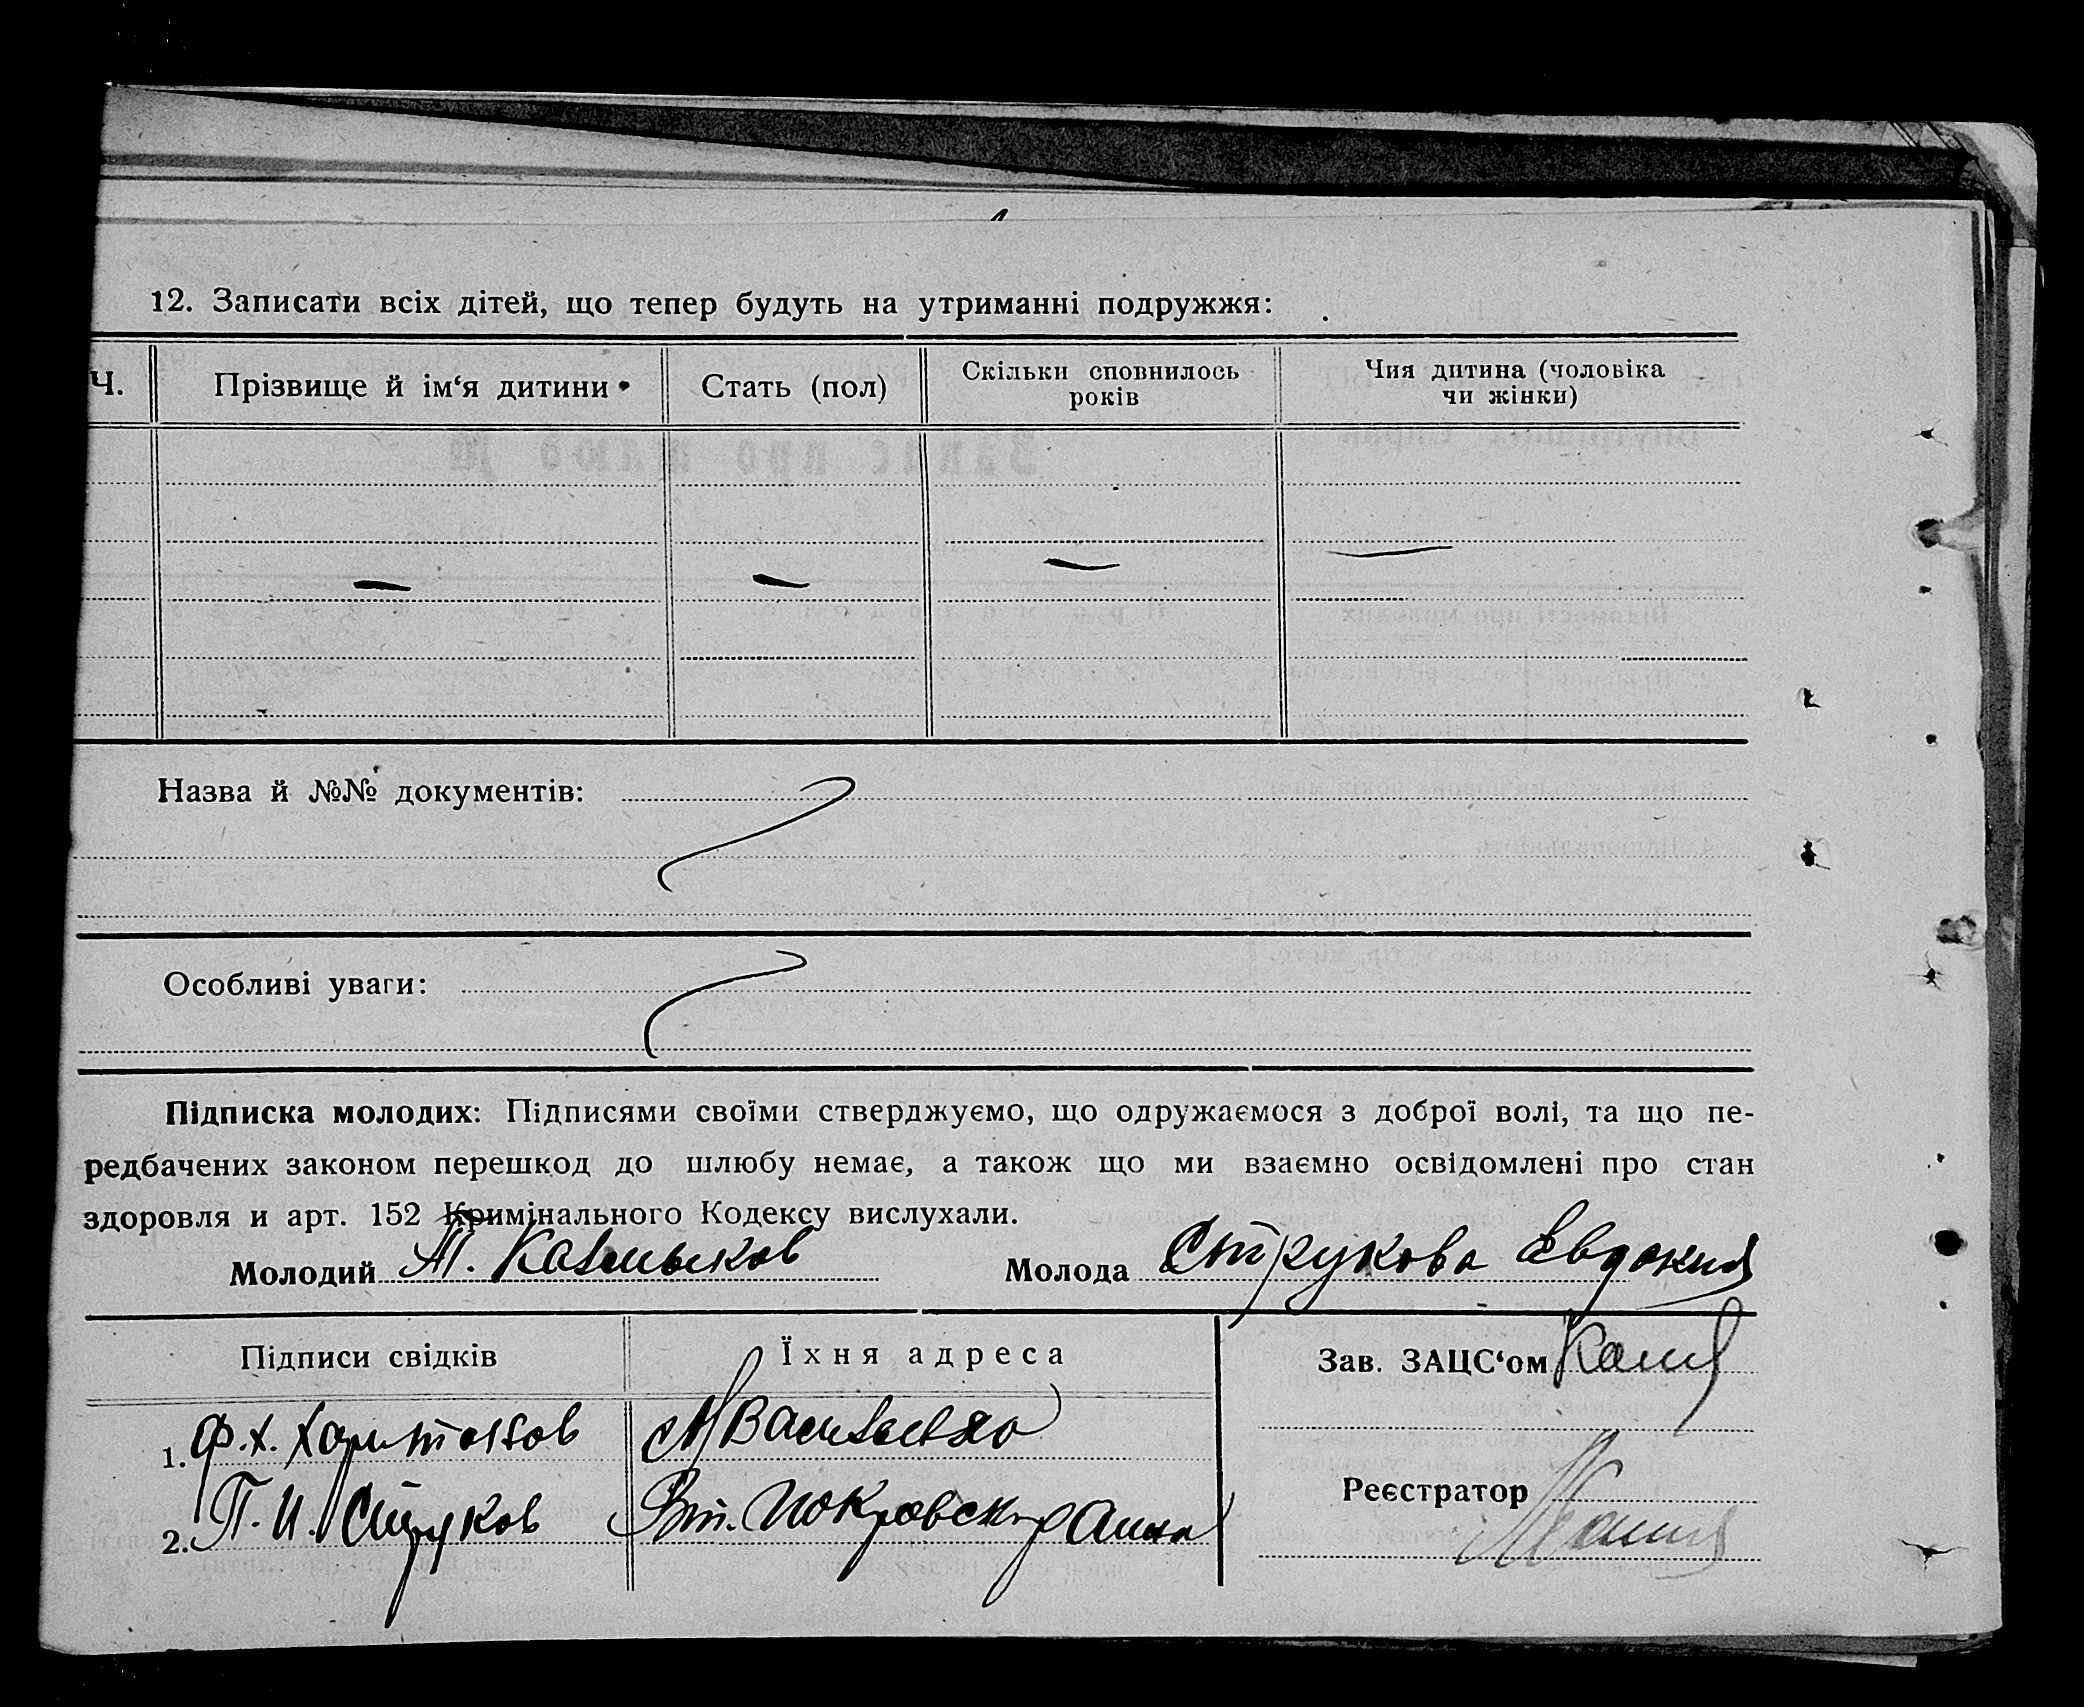 12. Записати всіх дітей, що тепер будуть на утриманні подружжя:
Ч. Прізвище й ім‘я дитини Стать (пол) Скільки сповнилось років Чия дитина (чоловіка чи жінки)
Назва й №№ документів:
Особливі уваги:
Підписка молодих: Підписями своїми стверджуємо, що одружаємося з доброї волі, та що пе-
редбачених законом перешкод до шлюбу немає, а також що ми взаємно освідомлені про стан
здоровля и арт. 152 Кримінального Кодексу вислухали.
Молодий Молода Струкова Евдокия
Підписи свідків Їхня адреса Зав. ЗАЦС‘ом
1. Ф. Х. Харитонов
Реєстратор
2. П. И. Струков